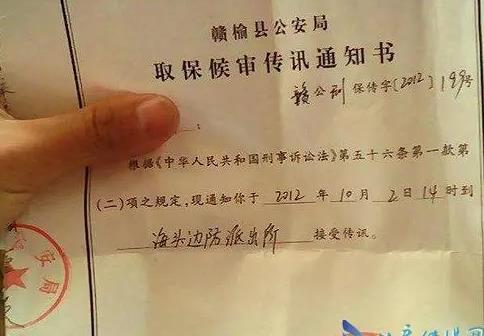 赣榆县公安局
取保候审传讯通知书
赣公刑 保传字〔2012〕199号
:
根据《中华人民共和国刑事诉讼法》第五十六条第一款第
(二)项之规定,现通知你于 2012 年 10 月 2 日 14 时到
海头边防派出所 接受传讯。
安局